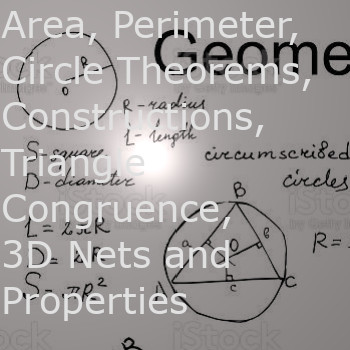 Area, Perimeter,
Circle Theorems,
Constructions,
Triangle
Congruence,
3D Nets and
Properties
Geome
R
O
R - radius
L - length
S - square
D - diameter
circumscribed
circles
L = 2πR
D = 2R
S = πR²
B
a
O
b
c
C
R =
iStock